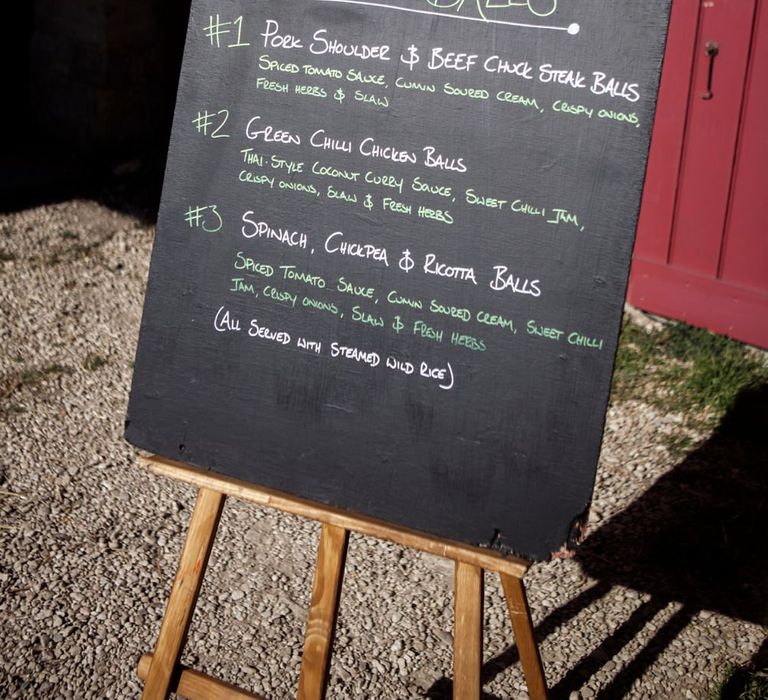 BALLS
#1 PORK SHOULDER & BEEF CHUCK STEAK BALLS
SPICED TOMATO SAUCE, CUMIN SOURED CREAM, CRISPY ONIONS,
FRESH HERBS & SLAW
#2 GREEN CHILLI CHICKEN BALLS
THAI-STYLE COCONUT CURRY SAUCE, SWEET CHILLI JAM,
CRISPY ONIONS, SLAW & FRESH HERBS
#3 SPINACH, CHICKPEA & RICOTTA BALLS
SPICED TOMATO SAUCE, CUMIN SOURED CREAM, SWEET CHILLI
JAM, CRISPY ONIONS, SLAW & FRESH HERBS
(ALL SERVED WITH STEAMED WILD RICE)